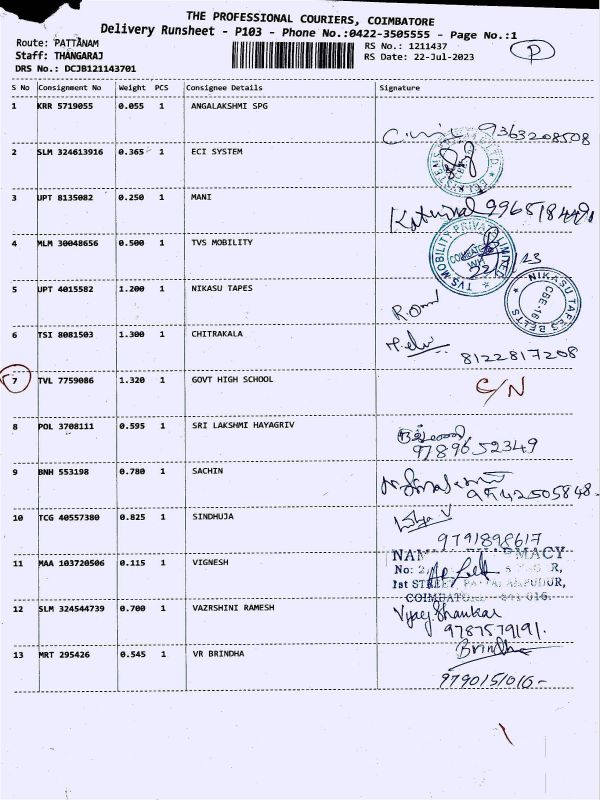 THE PROFESSIONAL COURIERS, COIMBATORE
Delivery Runsheet - P103 - Phone No.:0422-3505555 - Page No.:1
Route: PATTANAM
RS No.: 1211437
P
Staff: THANGARAJ
RS Date: 22-Jul-2023
DRS No.: DCJB121143701
S No Consignment No Weight PCS Consignee Details Signature
1 KRR 5719055 0.055 1 ANGALAKSHMI SPG
9363208508
2 SLM 324613916 0.365 1 ECI SYSTEM
3 UPT 8135082 0.250 1 MANI
4 MLM 30048656 0.500 1 TVS MOBILITY
TVS MOBILITY PRIVATE LIMITED
5 UPT 4015582 1.200 1 NIKASU TAPES
NIKASU TAPES BELTS
CBE-16
6 TSI 8081503 1.300 1 CHITRAKALA
8122817208
7 TVL 7759086 1.320 1 GOVT HIGH SCHOOL
C/N
8 POL 3708111 0.595 1 SRI LAKSHMI HAYAGRIV
9789652349
9 BNH 553198 0.780 1 SACHIN
10 TCG 40557380 0.825 1 SINDHUJA
9791898617
11 MAA 103720506 0.115 1 VIGNESH
1st STREET
COIMBATORE - 641 016.
12 SLM 324544739 0.700 1 VAZRSHINI RAMESH
Vijay Shankar
9787579191.
13 MRT 295426 0.545 1 VR BRINDHA
Brindha
9790151016-